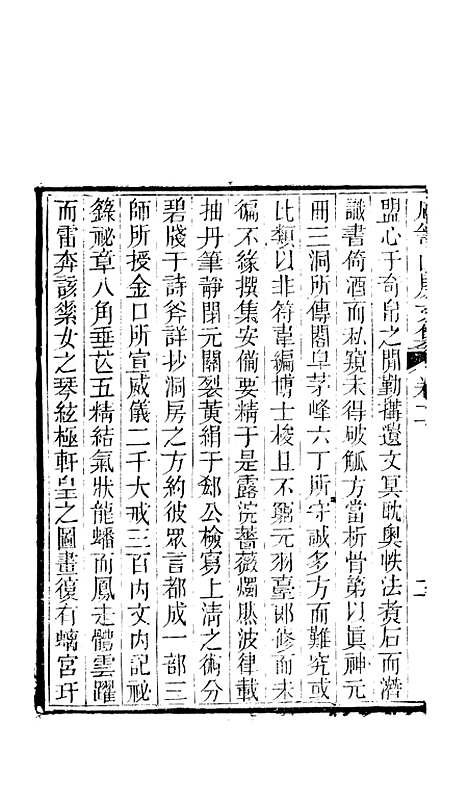 盟心于奇帛之閒勤搆遺文冥眈奥帙法賛后而潛
識書倚酒而私窺未得破觚方當析骨第以眞神元
冊三洞所傳閣皁茅峰六丁所守誠多方而難究或
比類以非符韋編博士梭且不廽元羽臺郎修而未
徧不緣撰集安備要精于是露浣薔薇燭㸐波律載
抽丹筆靜閉元關裂黃絹于郄公檢寫上清之術分
碧牋于詩斧詳抄洞房之方約彼眾言都成一部三
師所授金口所宣威儀二千大戒三百内文内記祕
籙祕章八角垂芒五精結氣狀龍蟠而鳳走體雲躍
而雷奔該縈女之琴絃極軒皇之圖畫復有螭宮玗